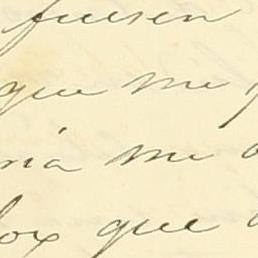 fuesen
que me
ria me
que